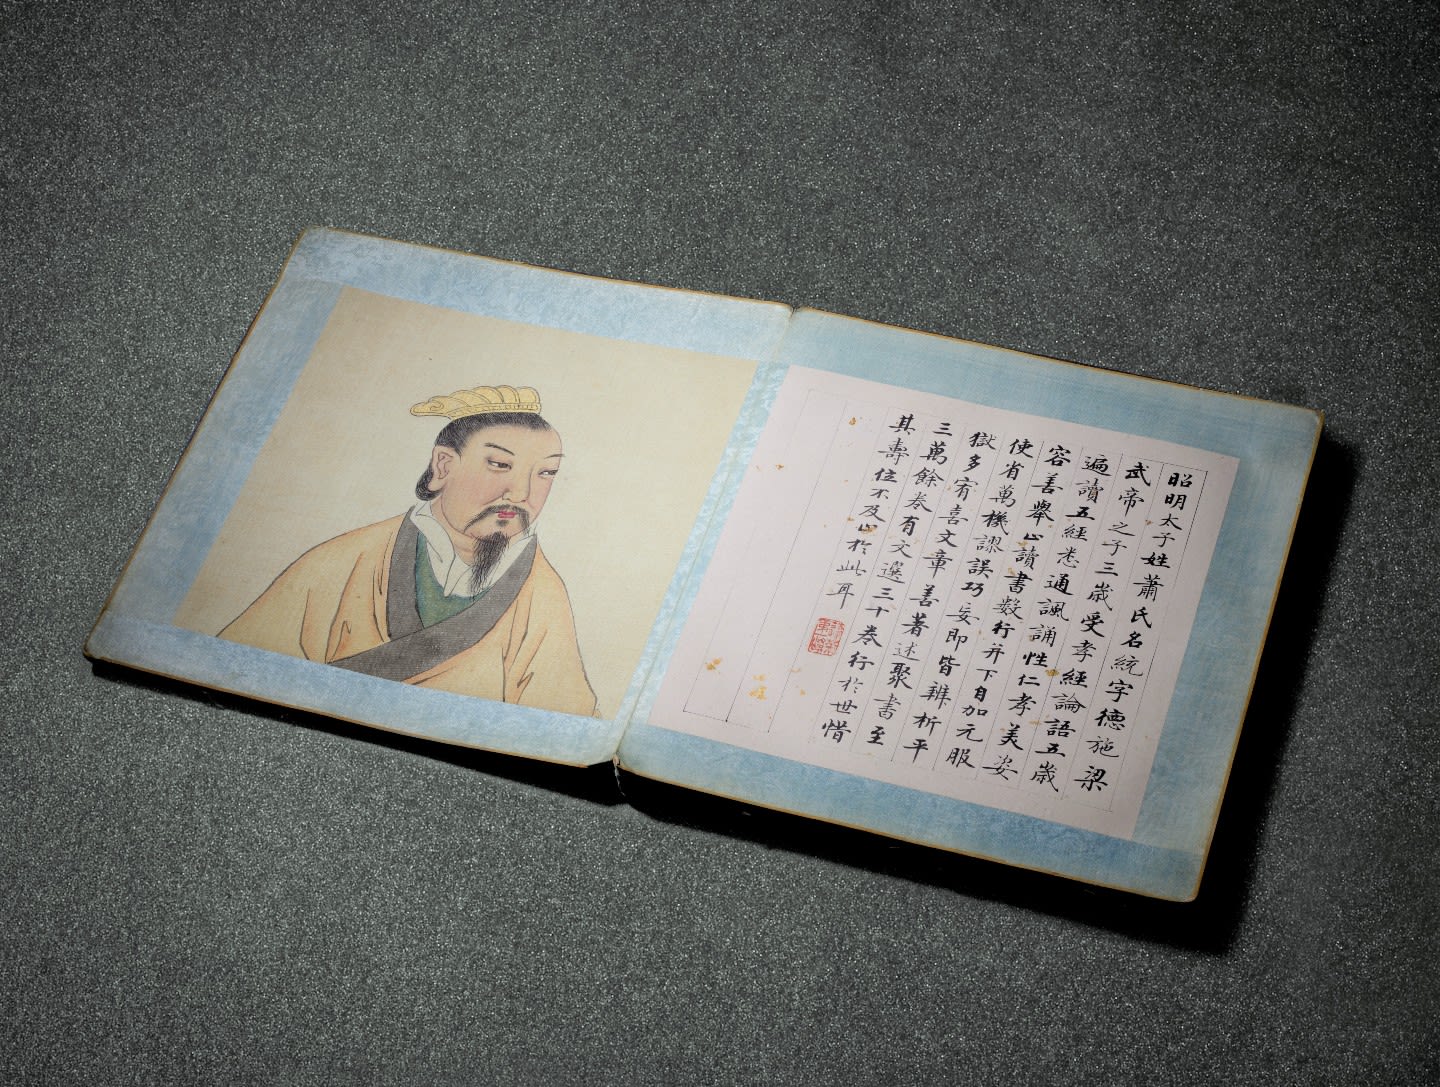 昭明太子姓蕭氏名統字德施梁
武帝之子三歳受孝經論語五歳
遍讀五經悉通諷誦性仁孝美姿
容善舉止讀書數行并下自加元服
使省萬機謬誤巧妄即皆辨析平
獄多宥喜文章善著述聚書至
三萬餘卷有文選三十卷行於世惜
其壽位不及止於此耳